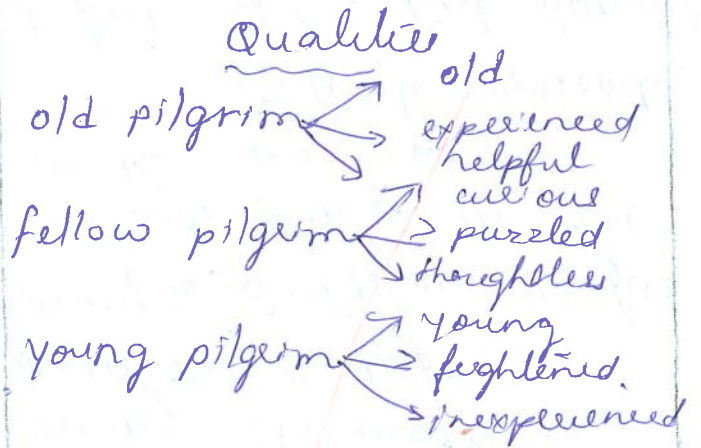 Qualities
old pilgrim
old
experienced
helpful
fellow pilgrim
curious
puzzled
thoughtless
young pilgrim
young
frightened.
inexperienced